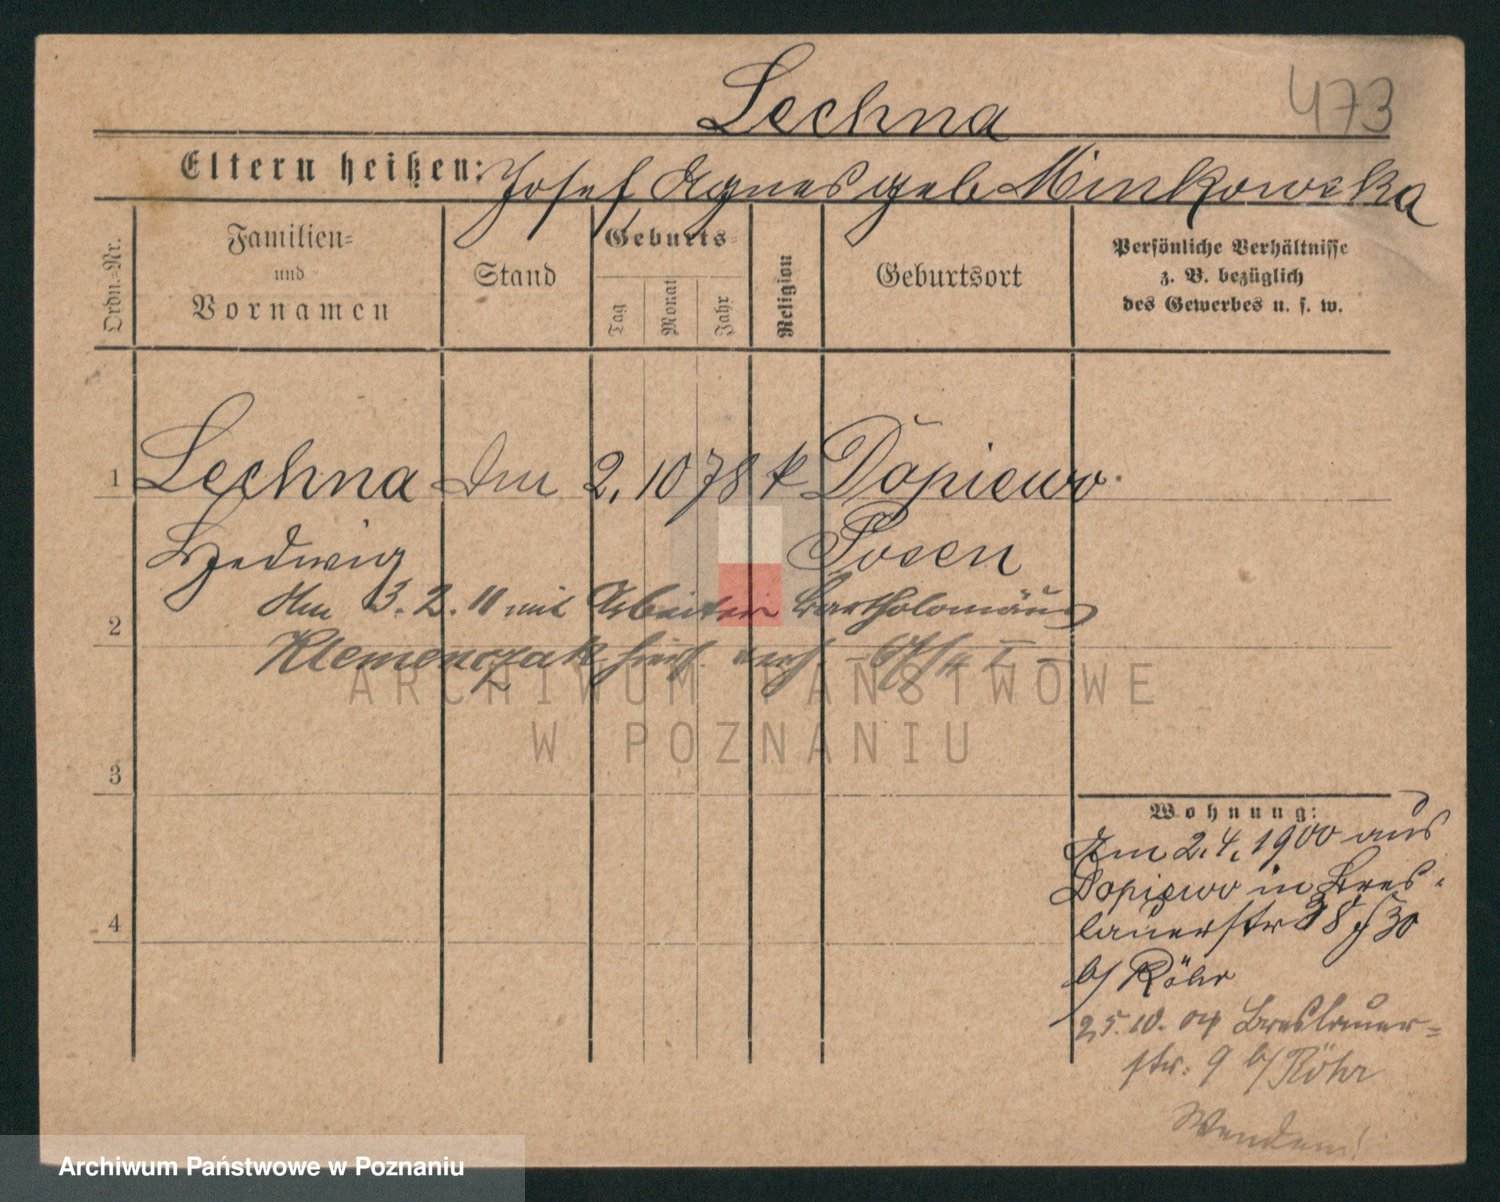 Lechna
473
Eltern heißen: Josef Agnes geb Minkowska
Ordn.-Nr.
Familien=
und
Vornamen
Stand
Geburts=
Tag
Monat
Jahr
Religion
Geburtsort
Persönliche Verhältnisse
z. B. bezüglich
des Gewerbes u. s. w.
1 Lechna 2. 10 78 k Dopiewo
Hedwig Posen
Am 3. 2. 11 mit Arbeiter Bartholomäus
2
Klemenczak
3
Wohnung:
Am 2. 4. 1900 aus
Dopiewo in Bres-
4
lauerstr 38
b/ Röhr
25. 10. Breslauer=
str. 9 b/ Röhr
Wenden!
ARCHIWUM PAŃSTWOWE
W POZNANIU
Archiwum Państwowe w Poznaniu